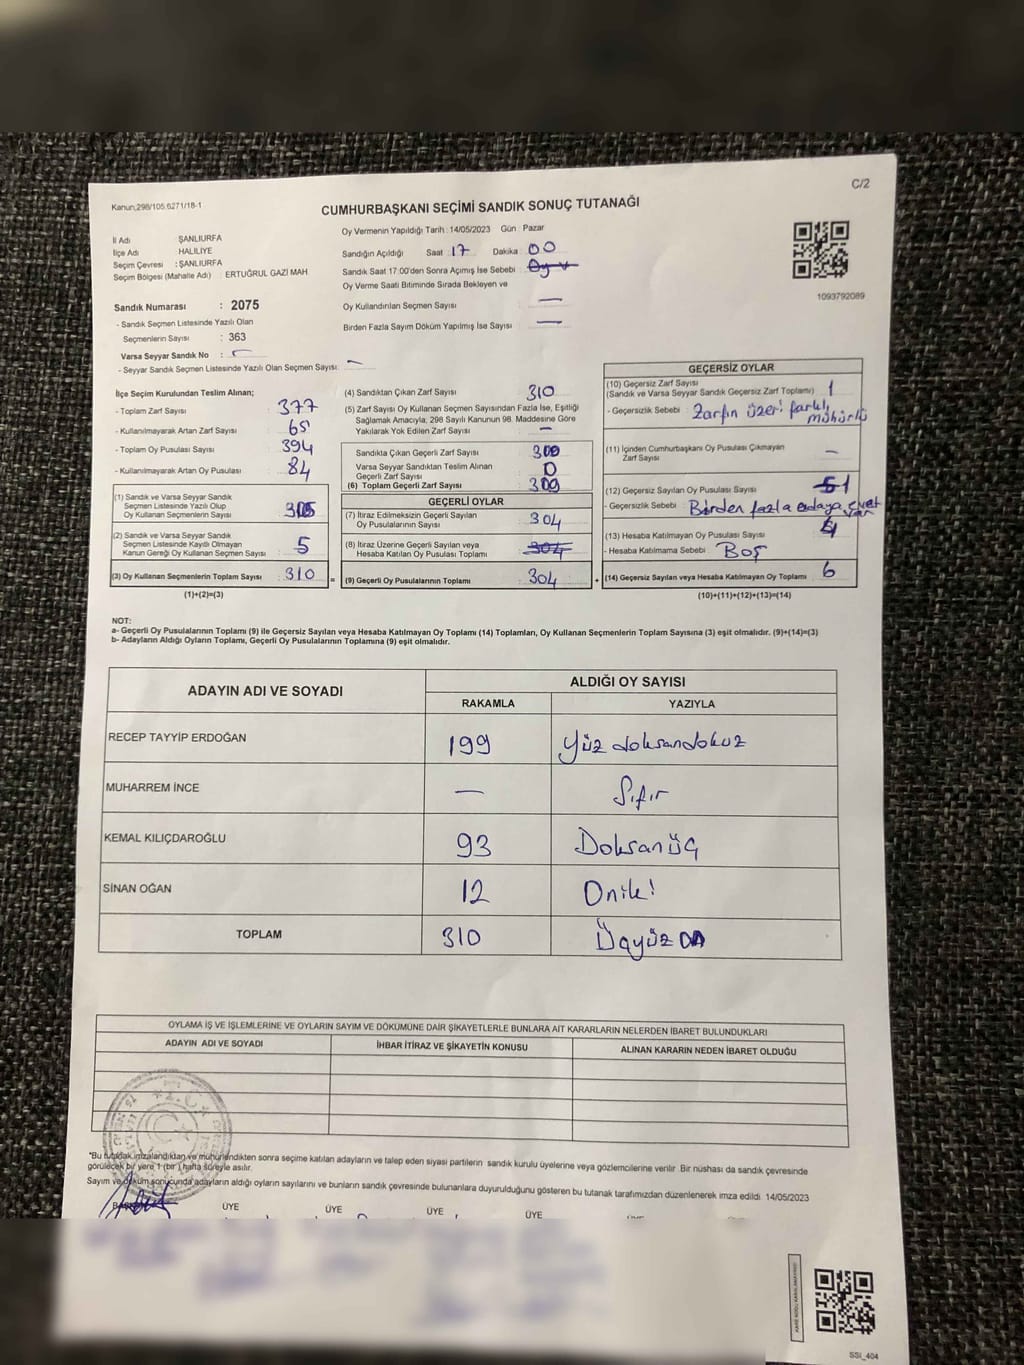 C/2
Kanun,298/105.6271/18-1
CUMHURBAŞKANI SEÇİMİ SANDIK SONUÇ TUTANAĞI
İl Adı ŞANLIURFA
İlçe Adı HALİLİYE
Seçim Çevresi : ŞANLIURFA
Seçim Bölgesi (Mahalle Adı) : ERTUĞRUL GAZİ MAH
Sandık Numarası : 2075
- Sandık Seçmen Listesinde Yazılı Olan
Seçmenlerin Sayısı : 363
Varsa Seyyar Sandık No : -
- Seyyar Sandık Seçmen Listesinde Yazılı Olan Seçmen Sayısı: -
Oy Vermenin Yapıldığı Tarih : 14/05/2023 Gün : Pazar
Sandığın Açıldığı Saat 17 Dakika 00
Sandık Saat 17:00'den Sonra Açılmış İse Sebebi
Oy Verme Saati Bitiminde Sırada Bekleyen ve
Oy Kullandırılan Seçmen Sayısı —
Birden Fazla Sayım Döküm Yapılmış İse Sayısı —
1093792089
İlçe Seçim Kurulundan Teslim Alınan;
- Toplam Zarf Sayısı 377
- Kullanılmayarak Artan Zarf Sayısı 65
- Toplam Oy Pusulası Sayısı 394
- Kullanılmayarak Artan Oy Pusulası 84
(1) Sandık ve Varsa Seyyar Sandık
Seçmen Listesinde Yazılı Olup
Oy Kullanan Seçmenlerin Sayısı 305
(2) Sandık ve Varsa Seyyar Sandık
Seçmen Listesinde Kayıtlı Olmayan
Kanun Gereği Oy Kullanan Seçmen Sayısı 5
(3) Oy Kullanan Seçmenlerin Toplam Sayısı 310 =
(1)+(2)=(3)
(4) Sandıktan Çıkan Zarf Sayısı 310
(5) Zarf Sayısı Oy Kullanan Seçmen Sayısından Fazla İse, Eşitliği
Sağlamak Amacıyla; 298 Sayılı Kanunun 98. Maddesine Göre
Yakılarak Yok Edilen Zarf Sayısı —
Sandıkla Çıkan Geçerli Zarf Sayısı 309
Varsa Seyyar Sandıktan Teslim Alınan
Geçerli Zarf Sayısı 0
(6) Toplam Geçerli Zarf Sayısı 309
GEÇERLİ OYLAR
(7) İtiraz Edilmeksizin Geçerli Sayılan
Oy Pusulalarının Sayısı 304
(8) İtiraz Üzerine Geçerli Sayılan veya
Hesaba Katılan Oy Pusulası Toplamı 304
(9) Geçerli Oy Pusulalarının Toplamı 304 +
GEÇERSİZ OYLAR
(10) Geçersiz Zarf Sayısı
(Sandık ve Varsa Seyyar Sandık Geçersiz Zarf Toplamı) 1
- Geçersizlik Sebebi : Zarfın üzeri farklı
mühürlü
(11) İçinden Cumhurbaşkanı Oy Pusulası Çıkmayan
Zarf Sayısı —
(12) Geçersiz Sayılan Oy Pusulası Sayısı 1
- Geçersizlik Sebebi : Birden fazla adaya evet
(13) Hesaba Katılmayan Oy Pusulası Sayısı 4
- Hesaba Katılmama Sebebi : Boş
(14) Geçersiz Sayılan veya Hesaba Katılmayan Oy Toplamı 6
(10)+(11)+(12)+(13)=(14)
NOT:
a- Geçerli Oy Pusulalarının Toplamı (9) ile Geçersiz Sayılan veya Hesaba Katılmayan Oy Toplamı (14) Toplamları, Oy Kullanan Seçmenlerin Toplam Sayısına (3) eşit olmalıdır. (9)+(14)=(3)
b- Adayların Aldığı Oyların Toplamı, Geçerli Oy Pusulalarının Toplamına (9) eşit olmalıdır.
ADAYIN ADI VE SOYADI ALDIĞI OY SAYISI
RAKAMLA YAZIYLA
RECEP TAYYİP ERDOĞAN 199 Yüz doksandokuz
MUHARREM İNCE — Sıfır
KEMAL KILIÇDAROĞLU 93 Doksanüç
SİNAN OĞAN 12 Oniki
TOPLAM 310 Üçyüz on
OYLAMA İŞ VE İŞLEMLERİNE VE OYLARIN SAYIM VE DÖKÜMÜNE DAİR ŞİKAYETLERLE BUNLARA AİT KARARLARIN NELERDEN İBARET BULUNDUKLARI
ADAYIN ADI VE SOYADI İHBAR İTİRAZ VE ŞİKAYETİN KONUSU ALINAN KARARIN NEDEN İBARET OLDUĞU
T.C.
*Bu tutanak imzalandıktan ve mühürlendikten sonra seçime katılan adayların ve talep eden siyasi partilerin sandık kurulu üyelerine veya gözlemcilerine verilir. Bir nüshası da sandık çevresinde
görülecek bir yere 1 (bir) hafta süreyle asılır.
Sayım ve döküm sonucunda adayların aldığı oyların sayılarını ve bunların sandık çevresinde bulunanlara duyurulduğunu gösteren bu tutanak tarafımızdan düzenlenerek imza edildi. 14/05/2023
BAŞKAN ÜYE ÜYE ÜYE ÜYE
SSI_404